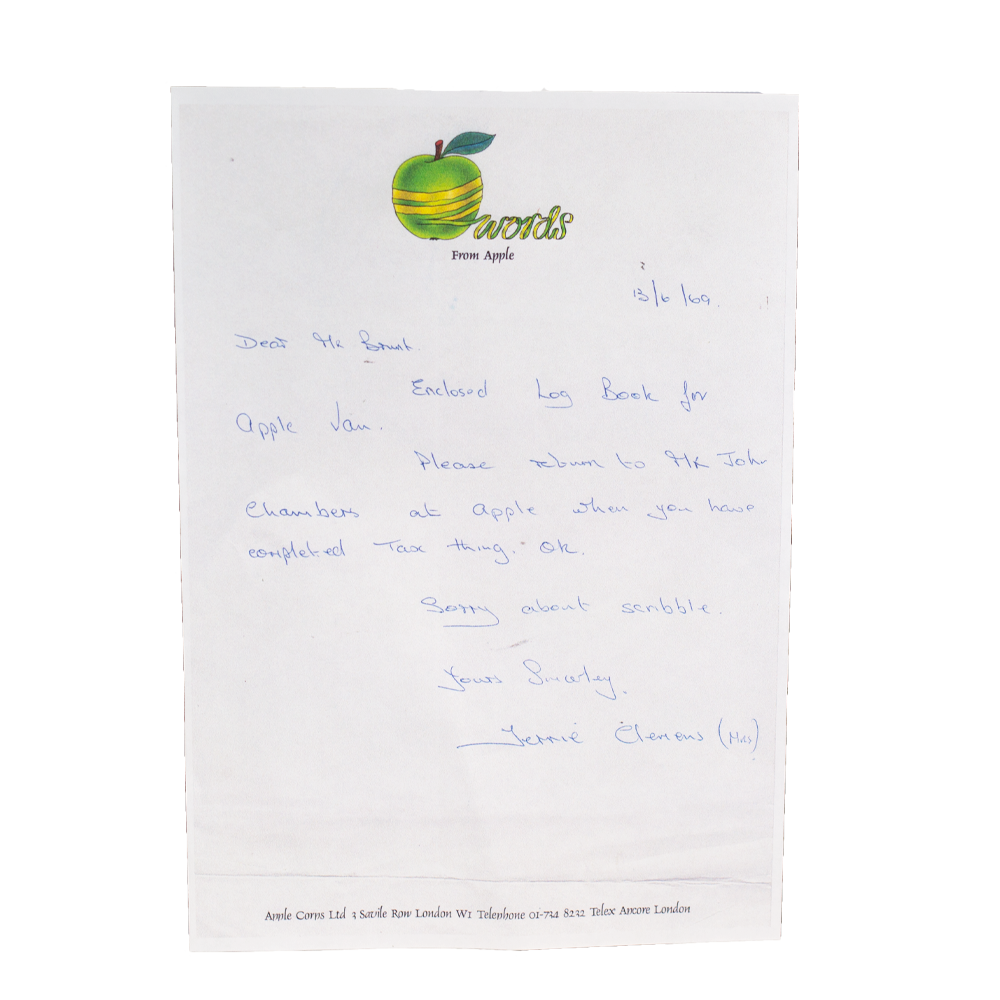 words
From Apple
13/6/69.
Dear Mr Brunt.
Enclosed Log Book for
Apple Van.
Please return to Mr John
Chambers at Apple when you have
completed Tax thing. OK.
Sorry about scribble.
Yours Sincerley.
Jerrie Clemens (Miss)
Apple Corps Ltd 3 Savile Row London W1 Telephone 01-734 8232 Telex Apcore London